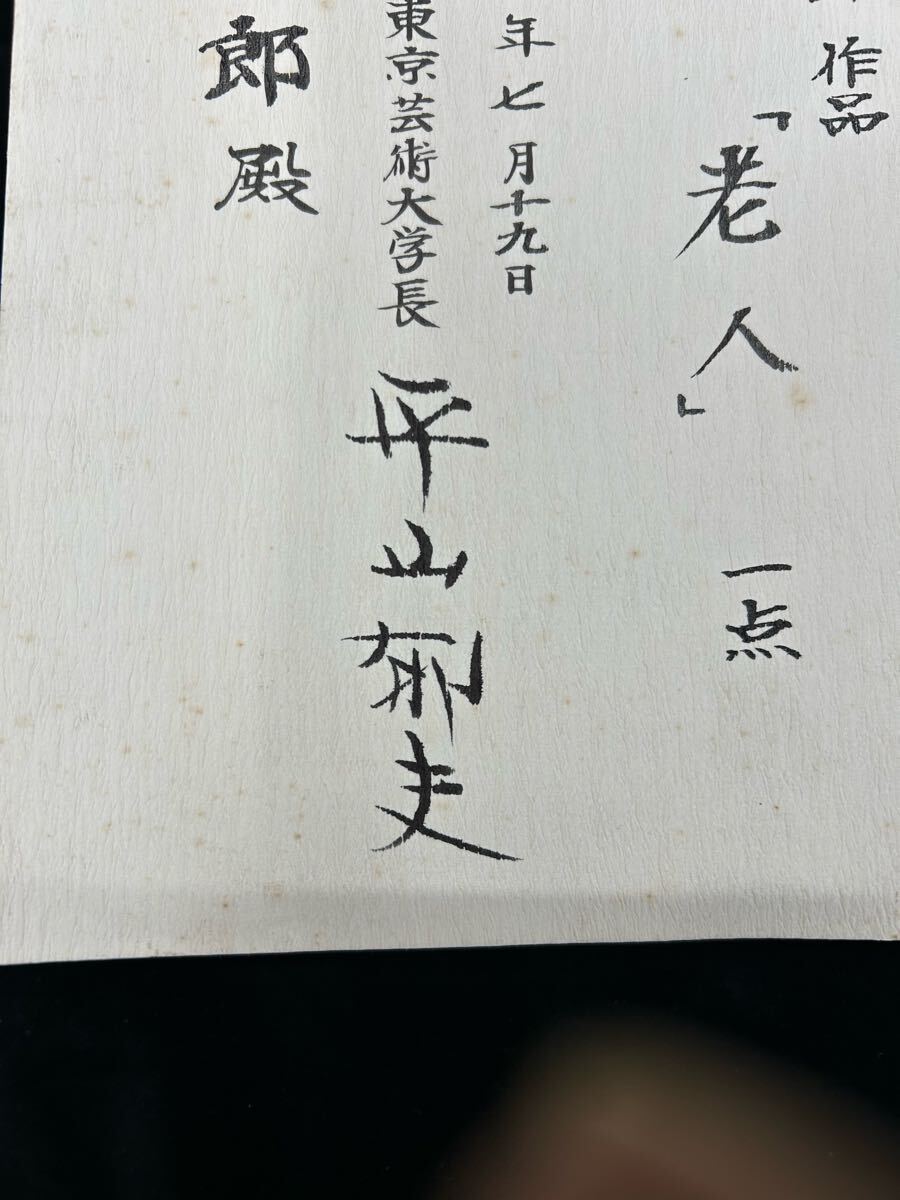 作品
「老人」 一点
年七月十九日
東京芸術大学長 平山郁夫
郎殿